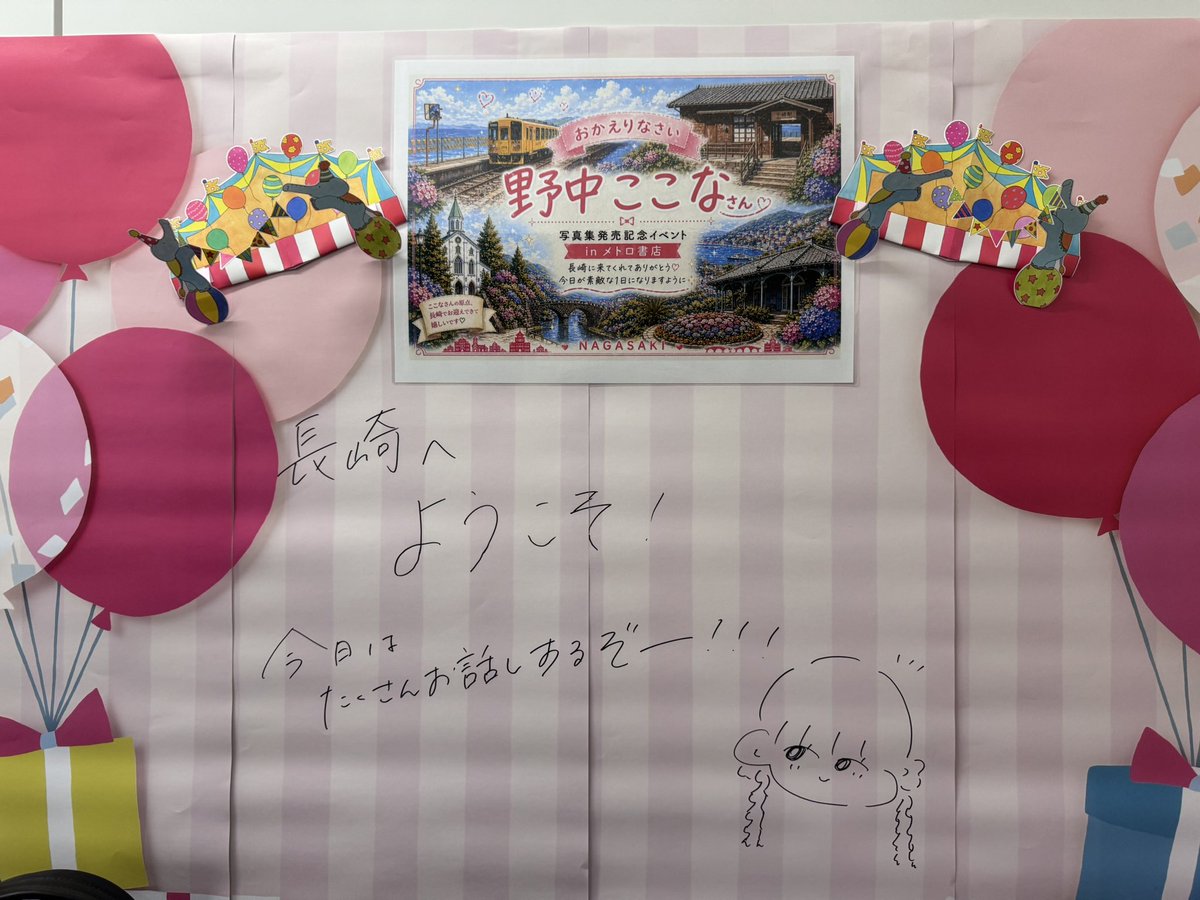 おかえりなさい
野中ここなさん♡
写真集発売記念イベント
in メトロ書店
長崎に来てくれてありがとう♡
今日が素敵な1日になりますように♪
ここなさんの原点、
長崎でお迎えできて
嬉しいです♡
NAGASAKI
長崎へ
ようこそ!
今日は
たくさんお話しするぞー!!!